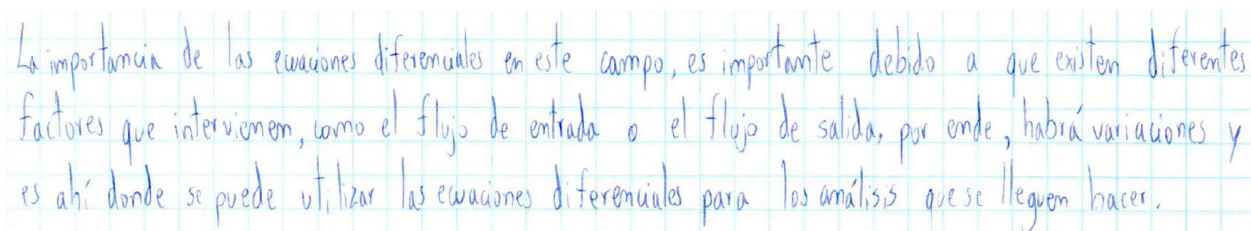 La importancia de las ecuaciones diferenciales en este campo, es importante debido a que existen diferentes
factores que intervienen, como el flujo de entrada o el flujo de salida, por ende, habrá variaciones y
es ahí donde se puede utilizar las ecuaciones diferenciales para los análisis que se lleguen hacer.